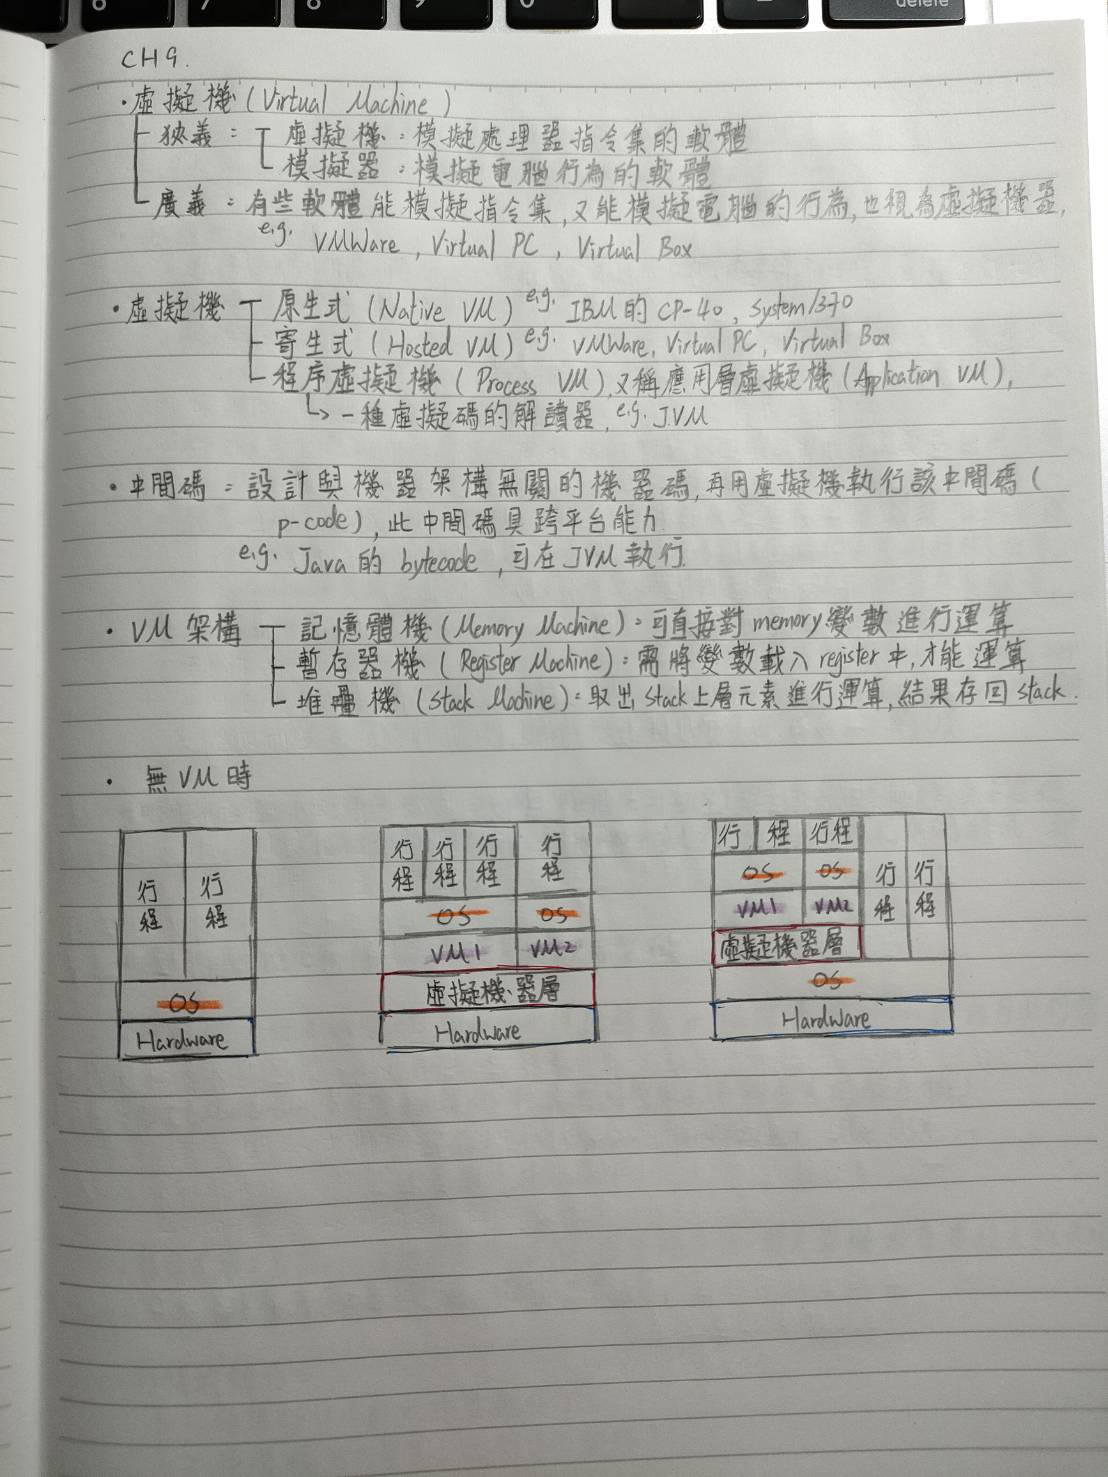 CH9.
・虛擬機(Virtual Machine)
狹義：虛擬機：模擬處理器指令集的軟體
模擬器：模擬電腦行為的軟體
廣義：有些軟體能模擬指令集,又能模擬電腦的行為,也視為虛擬機器,
e.g. VMWare, Virtual PC, Virtual Box
・虛擬機 原生式(Native VM) e.g. IBM的CP-40, System/370
寄生式(Hosted VM) e.g. VMWare, Virtual PC, Virtual Box
程序虛擬機(Process VM),又稱應用層虛擬機(Application VM),
↳一種虛擬碼的解讀器, e.g. JVM
・中間碼：設計與機器架構無關的機器碼,再用虛擬機執行該中間碼(
p-code),此中間碼具跨平台能力
e.g. Java的bytecode,可在JVM執行.
・VM架構 記憶體機(Memory Machine)：可直接對memory變數進行運算
暫存器機(Register Machine)：需將變數載入register中,才能運算
堆疊機(Stack Machine)：取出stack上層元素進行運算,結果存回stack.
・無VM時
行程 行程
OS
Hardware
行程 行程 行程 行程
OS OS
VM1 VM2
虛擬機器層
Hardware
行程 行程 行程 行程
OS OS
VM1 VM2
虛擬機器層
OS
Hardware
delete
6 7 8 9 0